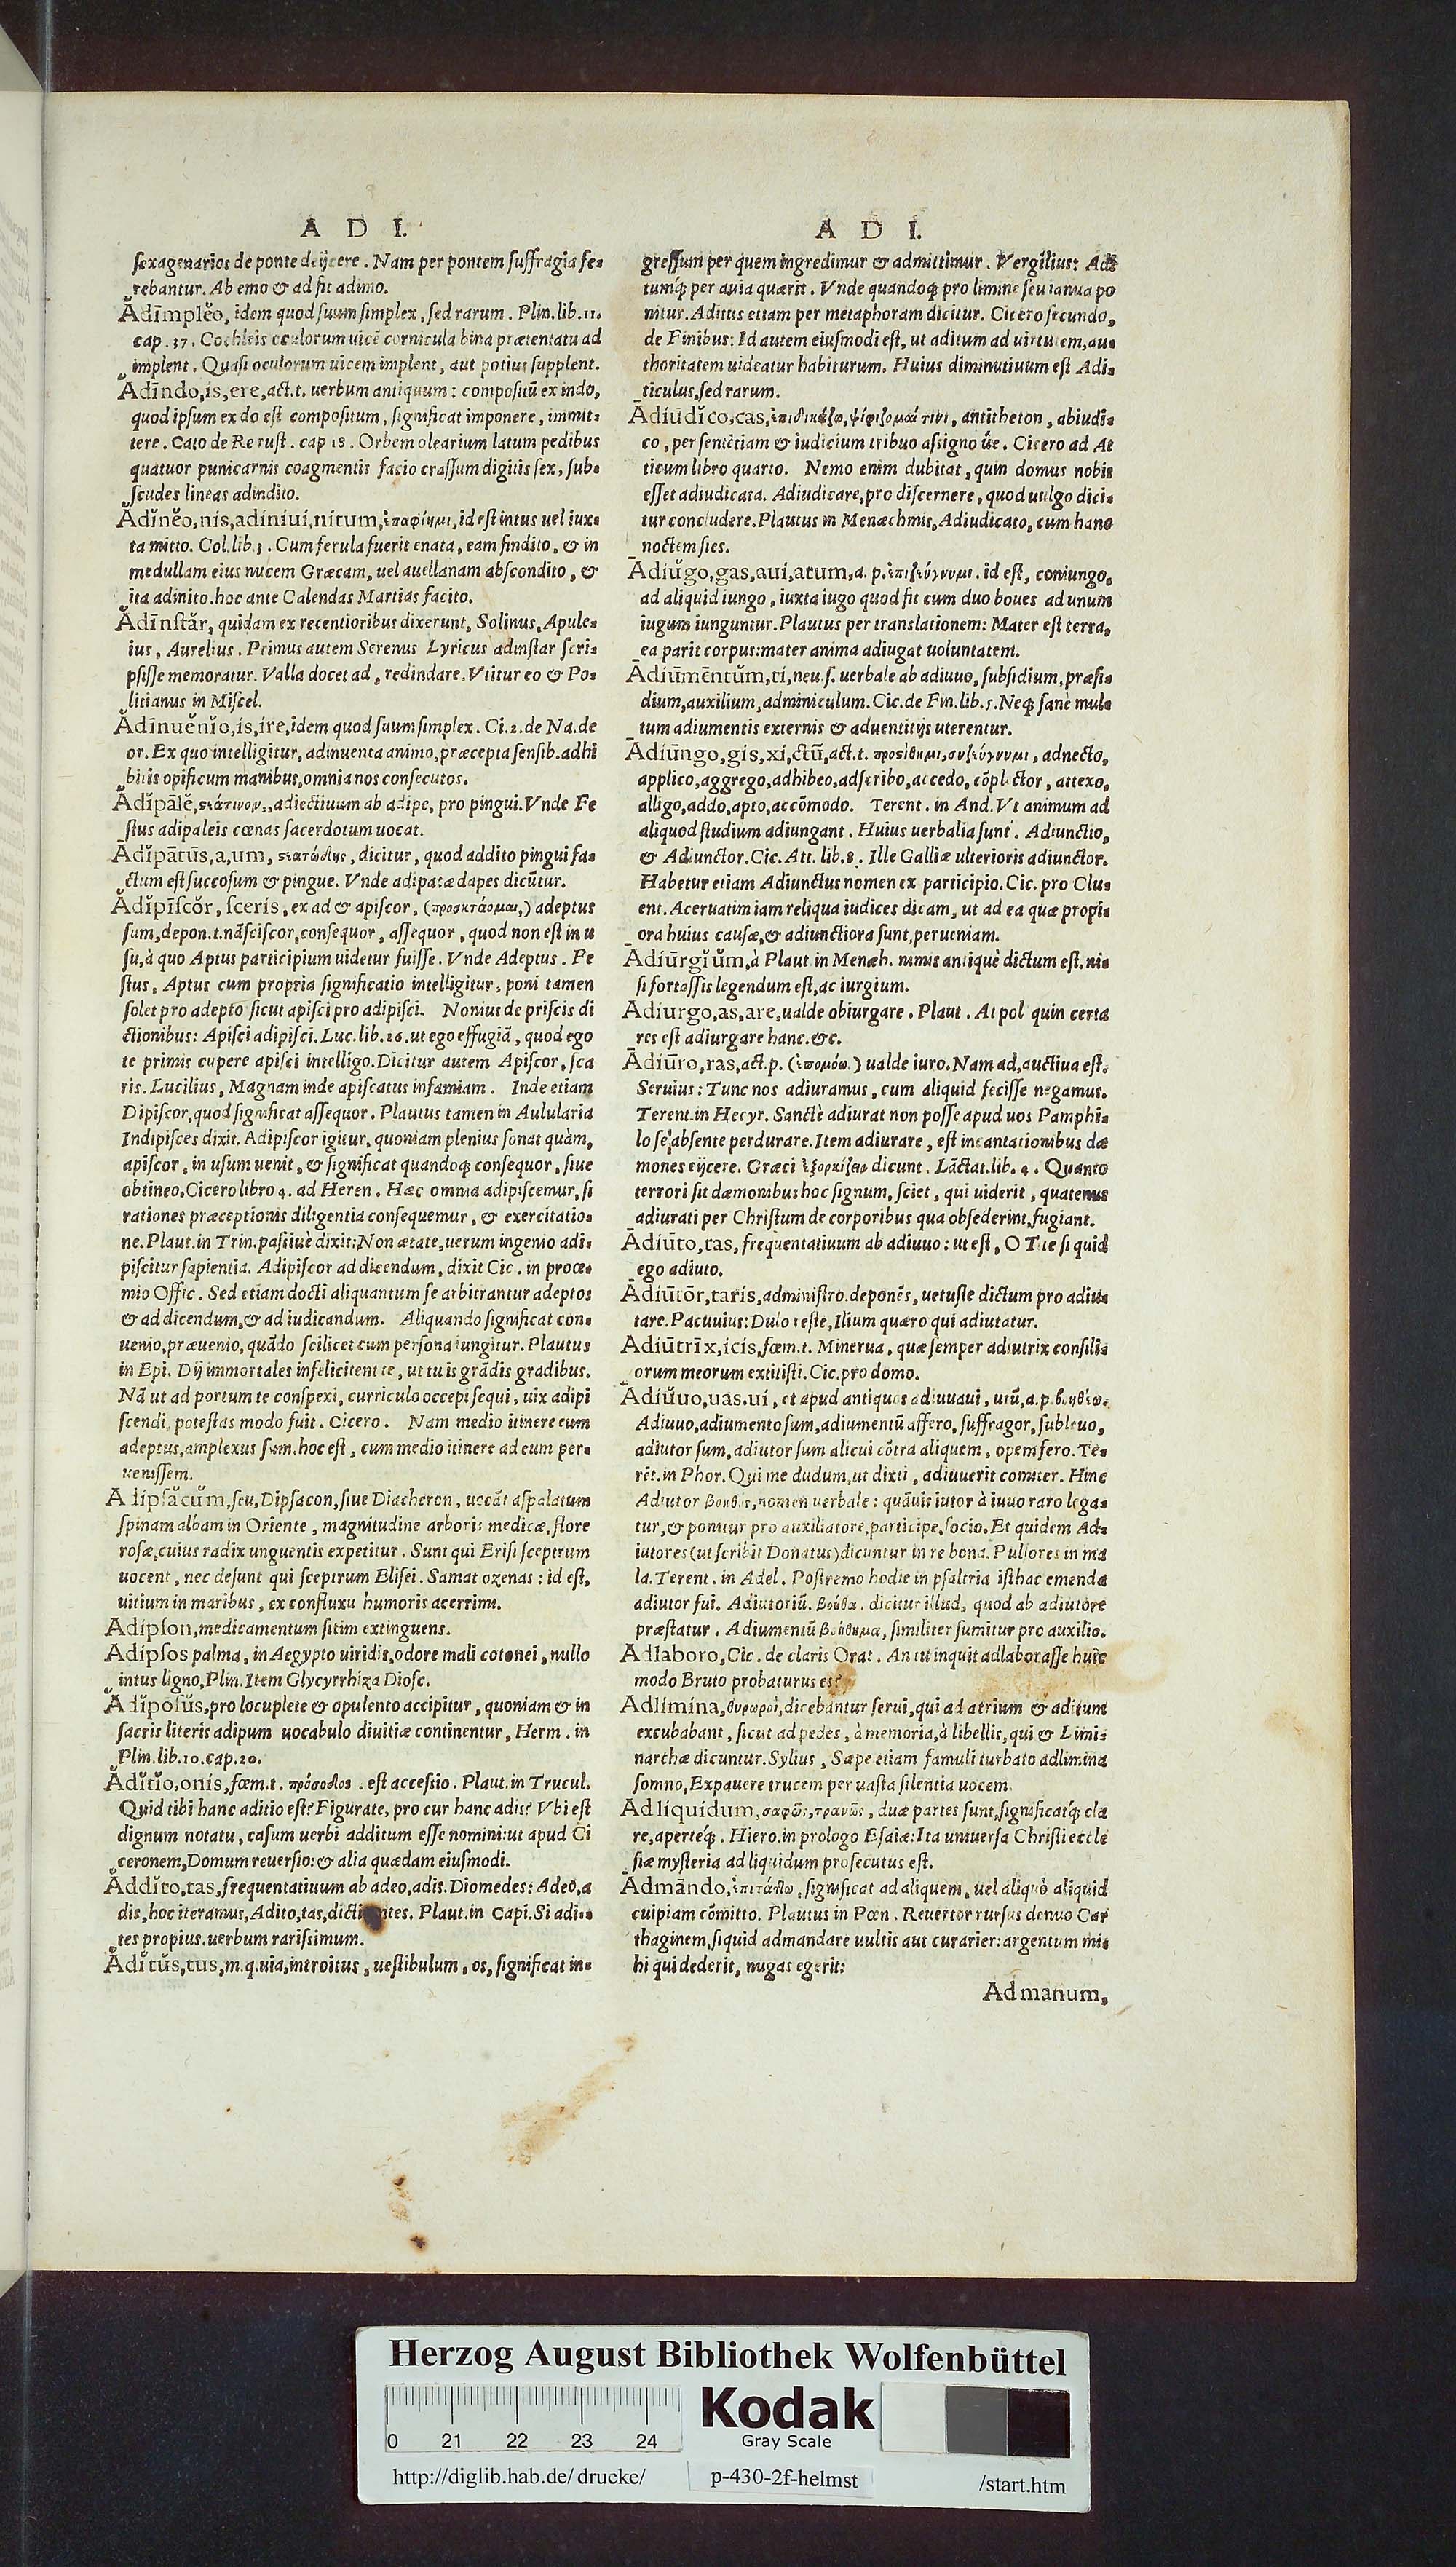 A D I.
sexagenarios de ponte deijcere. Nam per pontem suffragia fe-
rebantur. Ab emo & ad fit adimo.
Adīmplĕo, idem quod suum simplex, sed rarum. Plin. lib. 11.
cap. 37. Cochleis oculorum uicē cornicula bina prætentatu ad
implent. Quasi oculorum uicem implent, aut potius supplent.
Adīndo, is, ere, act. t. uerbum antiquum: compositū ex indo,
quod ipsum ex do est compositum, significat imponere, immit-
tere. Cato de Re rust. cap 18. Orbem olearium latum pedibus
quatuor punicarnis coagmentis facio crassum digitis sex, sub-
scudes lineas adindito.
Ădĭnĕo, nis, adiniui, nitum, ἐπαφίημι, id est intus uel iux-
ta mitto. Col. lib. 3. Cum ferula fuerit enata, eam findito, & in
medullam eius nucem Græcam, uel auellanam abscondito, &
ita adinito. hoc ante Calendas Martias facito.
Ădīnstăr, quidam ex recentioribus dixerunt, Solinus, Apule-
ius, Aurelius. Primus autem Serenus Lyricus adinstar scri-
psisse memoratur. Valla docet ad, redindare. Vtitur eo & Po-
litianus in Miscel.
Adīnuĕnĭo, is, ire, idem quod suum simplex. Ci. 2. de Na. de
or. Ex quo intelligitur, adinuenta animo, præcepta sensib. adhi
bitis opificum manibus, omnia nos consecutos.
Ădĭpālĕ, στάτινον, adiectiuum ab adipe, pro pingui. Vnde Fe
stus adipaleis cœnas sacerdotum uocat.
Ădĭpātŭs, a, um, στατώδης, dicitur, quod addito pingui fa-
ctum est succosum & pingue. Vnde adipatæ dapes dicūtur.
Ădĭpīscŏr, sceris, ex ad & apiscor, (προσκτάομαι,) adeptus
sum, depon. t. nāsciscor, consequor, assequor, quod non est in u
su, à quo Aptus participium uidetur fuisse. Vnde Adeptus. Fe
stus, Aptus cum propria significatio intelligitur, poni tamen
solet pro adepto sicut apisci pro adipisci. Nonius de priscis di
ctionibus: Apisci adipisci. Luc. lib. 26. ut ego effugiā, quod ego
te primis cupere apisci intelligo. Dicitur autem Apiscor, sca
ris. Lucilius, Magnam inde apiscatus infamiam. Inde etiam
Dipiscor, quod significat assequor. Plautus tamen in Aulularia
Indipisces dixit. Adipiscor igitur, quoniam plenius sonat quàm,
apiscor, in usum uenit, & significat quandoq; consequor, siue
obtineo. Cicero libro 4. ad Heren. Hæc omnia adipiscemur, si
rationes præceptionis diligentia consequemur, & exercitatio-
ne. Plaut. in Trin. passiuè dixit: Non ætate, uerum ingenio adi-
piscitur sapientia. Adipiscor ad dicendum, dixit Cic. in proœ-
mio Offic. Sed etiam docti aliquantum se arbitrantur adeptos
& ad dicendum, & ad iudicandum. Aliquando significat con-
uenio, præuenio, quādo scilicet cum persona iungitur. Plautus
in Epi. Dij immortales infelicitent te, ut tu is grādis gradibus.
Nā ut ad portum te conspexi, curriculo occepi sequi, uix adipi
scendi, potestas modo fuit. Cicero. Nam medio itinere eum
adeptus, amplexus sum. hoc est, cum medio itinere ad eum per-
uenissem.
Adipsăcŭm, seu, Dipsacon, siue Diacheron, uocāt aspalatum
spinam albam in Oriente, magnitudine arboris medicæ, flore
rosæ, cuius radix unguentis expetitur. Sunt qui Erisi sceptrum
uocent, nec desunt qui sceptrum Elisei. Samat ozenas: id est,
uitium in maribus, ex confluxu humoris acerrimi.
Adipson, medicamentum sitim extinguens.
Adipsos palma, in Aegypto uiridis, odore mali cotonei, nullo
intus ligno, Plin. Item Glycyrrhiza Diosc.
Ădĭpōsŭs, pro locuplete & opulento accipitur, quoniam & in
sacris literis adipum uocabulo diuitiæ continentur, Herm. in
Plin. lib. 10. cap. 20.
Ădĭtĭo, onis, fœm. t. πρόσοδος. est accessio. Plaut. in Trucul.
Quid tibi hanc aditio est? Figurate, pro cur hanc adis? Vbi est
dignum notatu, casum uerbi additum esse nomini: ut apud Ci
ceronem, Domum reuersio: & alia quædam eiusmodi.
Ăddĭto, tas, frequentatiuum ab adeo, adis. Diomedes: Adeo, a
dis, hoc iteramus, Adito, tas, Plaut. in Capi. Si adi-
tes propius. uerbum rarissimum.
Ădĭtŭs, tus, m. q. uia, introitus, uestibulum, os, significat in-
A D I.
gressum per quem ingredimur & admittimur. Vergilius: Adi
tumq; per auia quærit. Vnde quandoq; pro limine seu ianua po
nitur. Aditus etiam per metaphoram dicitur. Cicero secundo,
de Finibus: Id autem eiusmodi est, ut aditum ad uirtutem, au-
thoritatem uideatur habiturum. Huius diminutiuum est Adi-
ticulus, sed rarum.
Adiudĭco, cas, ἐπιδικάζω, ψιφίζομαί τινι, antitheton, abiudi-
co, per sentētiam & iudicium tribuo assigno ūe. Cicero ad At
ticum libro quarto. Nemo enim dubitat, quin domus nobis
esset adiudicata. Adiudicare, pro discernere, quod uulgo dici-
tur concludere. Plautus in Menæchmis, Adiudicato, cum hanc
noctem sies.
Ādiŭgo, gas, aui, atum, a. p. ἐπιζεύγνυμι. id est, coniungo,
ad aliquid iungo, iuxta iugo quod fit cum duo boues ad unum
iugum iunguntur. Plautus per translationem: Mater est terra,
ea parit corpus: mater anima adiugat uoluntatem.
Ādiūmēntŭm, ti, neu. s. uerbale ab adiuuo, subsidium, præsi-
dium, auxilium, adminiculum. Cic. de Fin. lib. 5. Neq; sanè mul-
tum adiumentis externis & aduentitijs uterentur.
Ādiūngo, gis, xi, ctū, act. t. προσίθημι, συζεύγνυμι, adnecto,
applico, aggrego, adhibeo, adscribo, accedo, cōplector, attexo,
alligo, addo, apto, accōmodo. Terent. in And. Vt animum ad
aliquod studium adiungant. Huius uerbalia sunt. Adiunctio,
& Adiunctor. Cic. Att. lib. 8. Ille Galliæ ulterioris adiunctor.
Habetur etiam Adiunctus nomen ex participio. Cic. pro Clu-
ent. Aceruatim iam reliqua iudices dicam, ut ad ea quæ propi-
ora huius causæ, & adiunctiora sunt, perueniam.
Ādiūrgĭŭm, à Plaut. in Menæh. nimis antiquè dictum est. ni-
si fortassis legendum est, ac iurgium.
Adiurgo, as, are, ualde obiurgare. Plaut. At pol quin certa
res est adiurgare hanc. &c.
Ādiūro, ras, act. p. (ἐπομόω.) ualde iuro. Nam ad, auctiua est.
Seruius: Tunc nos adiuramus, cum aliquid fecisse negamus.
Terent. in Hecyr. Sanctè adiurat non posse apud uos Pamphi-
lo se absente perdurare. Item adiurare, est incantationibus dæ
mones eijcere. Græci ἐξορκίζειν dicunt. Lāctat. lib. 4. Quanto
terrori sit dæmonibus hoc signum, sciet, qui uiderit, quatenus
adiurati per Christum de corporibus qua obsederint, fugiant.
Ādiūto, tas, frequentatiuum ab adiuuo: ut est, O Tite si quid
ego adiuto.
Ādiūtōr, taris, administro. deponēs, uetuste dictum pro adiu-
tare. Pacuuius: Dulo teste, Ilium quæro qui adiutatur.
Adiūtrīx, icis, fœm. t. Minerua, quæ semper adiutrix consili-
orum meorum extitisti. Cic. pro domo.
Adiŭuo, uas. ui, et apud antiquos adiuuaui, utū, a. p. βοηθέω.
Adiuuo, adiumento sum, adiumentū affero, suffragor, subleuo,
adiutor sum, adiutor sum alicui cōtra aliquem, opem fero. Te-
rēt. in Phor. Qui me dudum, ut dixti, adiuuerit comiter. Hinc
Adiutor βοηθὸς, nomen uerbale: quāuis iutor à iuuo raro lega-
tur, & ponitur pro auxiliatore, participe, socio. Et quidem Ad-
iutores (ut scribit Donatus) dicuntur in re bona. Pulsores in ma
la. Terent. in Adel. Postremo hodie in psaltria isthac emenda
adiutor fui. Adiutoriū. βοήθα. dicitur illud, quod ab adiutore
præstatur. Adiumentū βοήθημα, similiter sumitur pro auxilio.
Adlaboro, Cic. de claris Orat. An tu inquit adlaborasse huic
modo Bruto probaturus es?
Adlimina, θυρωροὶ, dicebantur serui, qui ad atrium & aditum
excubabant, sicut ad pedes, à memoria, à libellis, qui & Limi-
narchæ dicuntur. Sylius, Sæpe etiam famuli turbato adlimina
somno, Expauere trucem per uasta silentia uocem.
Adliquidum, σαφῶς, τρανῶς, duæ partes sunt, significātq; cla
re, aperteq́;. Hiero. in prologo Esaiæ: Ita uniuersa Christi eccle
siæ mysteria ad liquidum prosecutus est.
Admāndo, ἐπιτάττω, significat ad aliquem, uel aliquò aliquid
cuipiam cōmitto. Plautus in Pœn. Reuertor rursus denuo Car
thaginem, siquid admandare uultis aut curarier: argentum mi-
hi qui dederit, nugas egerit:
Admanum,
Herzog August Bibliothek Wolfenbüttel
0 21 22 23 24
Kodak
Gray Scale
http://diglib.hab.de/drucke/ p-430-2f-helmst /start.htm